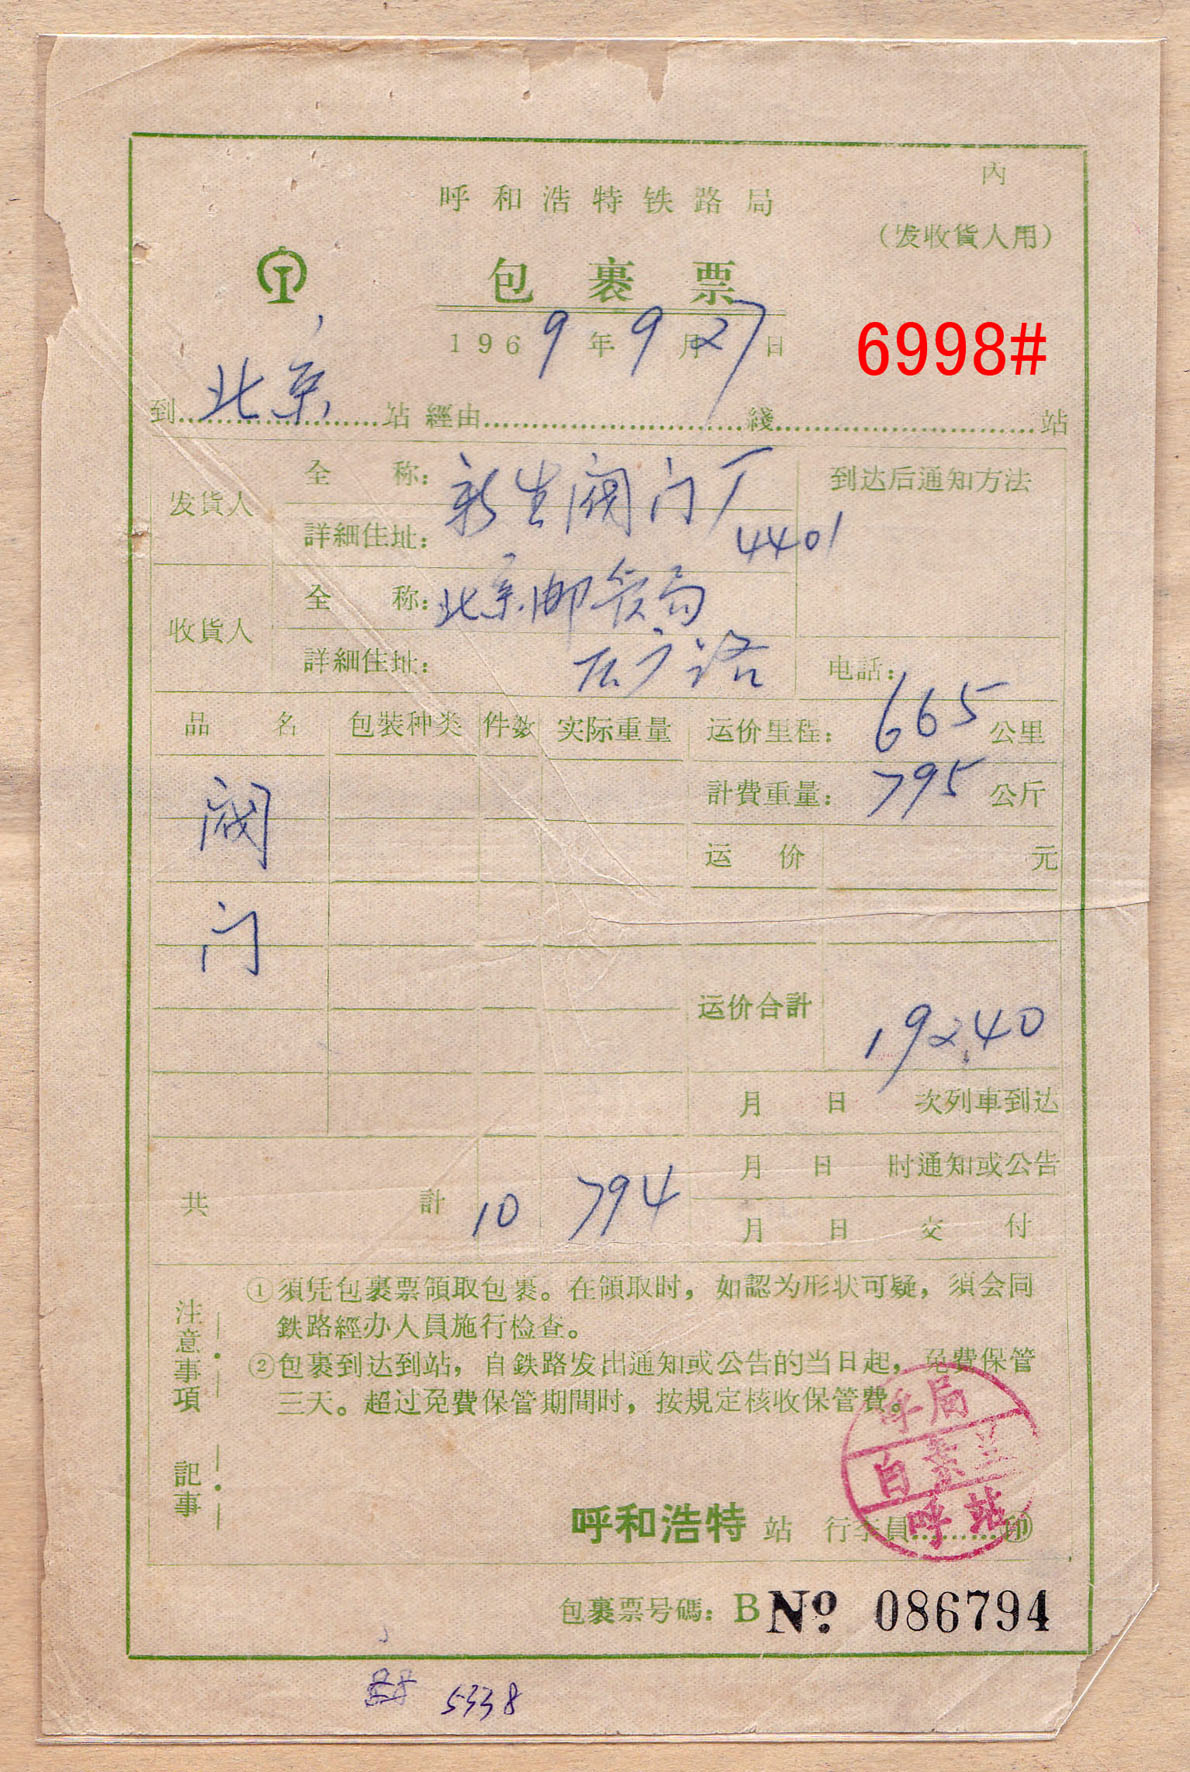 内
呼和浩特铁路局
(发收貨人用)
包裹票
1969年9月27日
6998#
到北京站 經由 綫 站
发货人 全称: 新生阀门厂
詳細住址: 4401
到达后通知方法
收貨人 全称: 北京邮管局
詳細住址: 广路
电話:
品名 包裝种类 件数 实际重量 运价里程: 665 公里
阀门
計費重量: 795 公斤
运价 元
运价合計 192.40
月 日 次列車到达
月 日 时通知或公告
月 日 交付
共計 10 794
注意事項
①須凭包裹票領取包裹。在領取时，如認为形状可疑，須会同
鉄路經办人員施行检查。
②包裹到达到站，自鉄路发出通知或公告的当日起，免費保管
三天。超过免費保管期間时，按規定核收保管費。
記事
呼局
白素兰
呼站
呼和浩特 站 行李員 印
包裹票号碼: B № 086794
5338